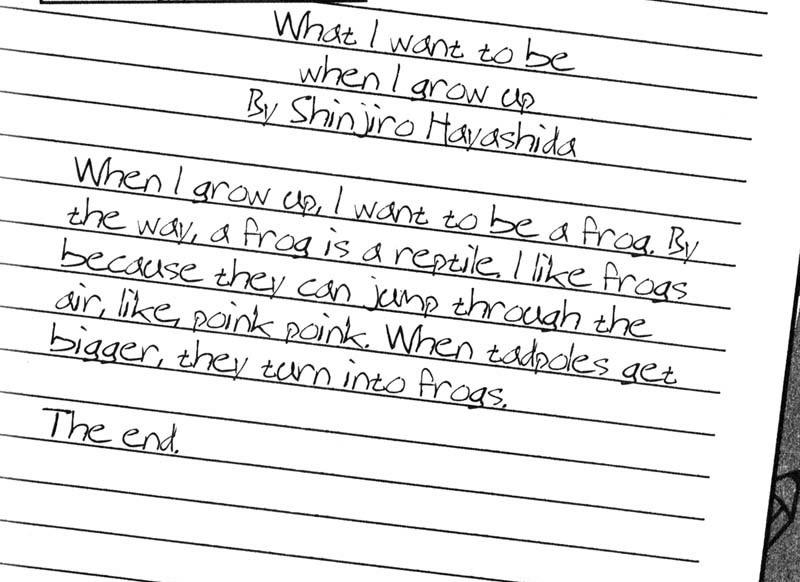 What I want to be
when I grow up
By Shinjiro Hayashida
When I grow up, I want to be a frog. By
the way, a frog is a reptile. I like frogs
because they can jump through the
air, like, poink poink. When tadpoles get
bigger, they turn into frogs.
The end.